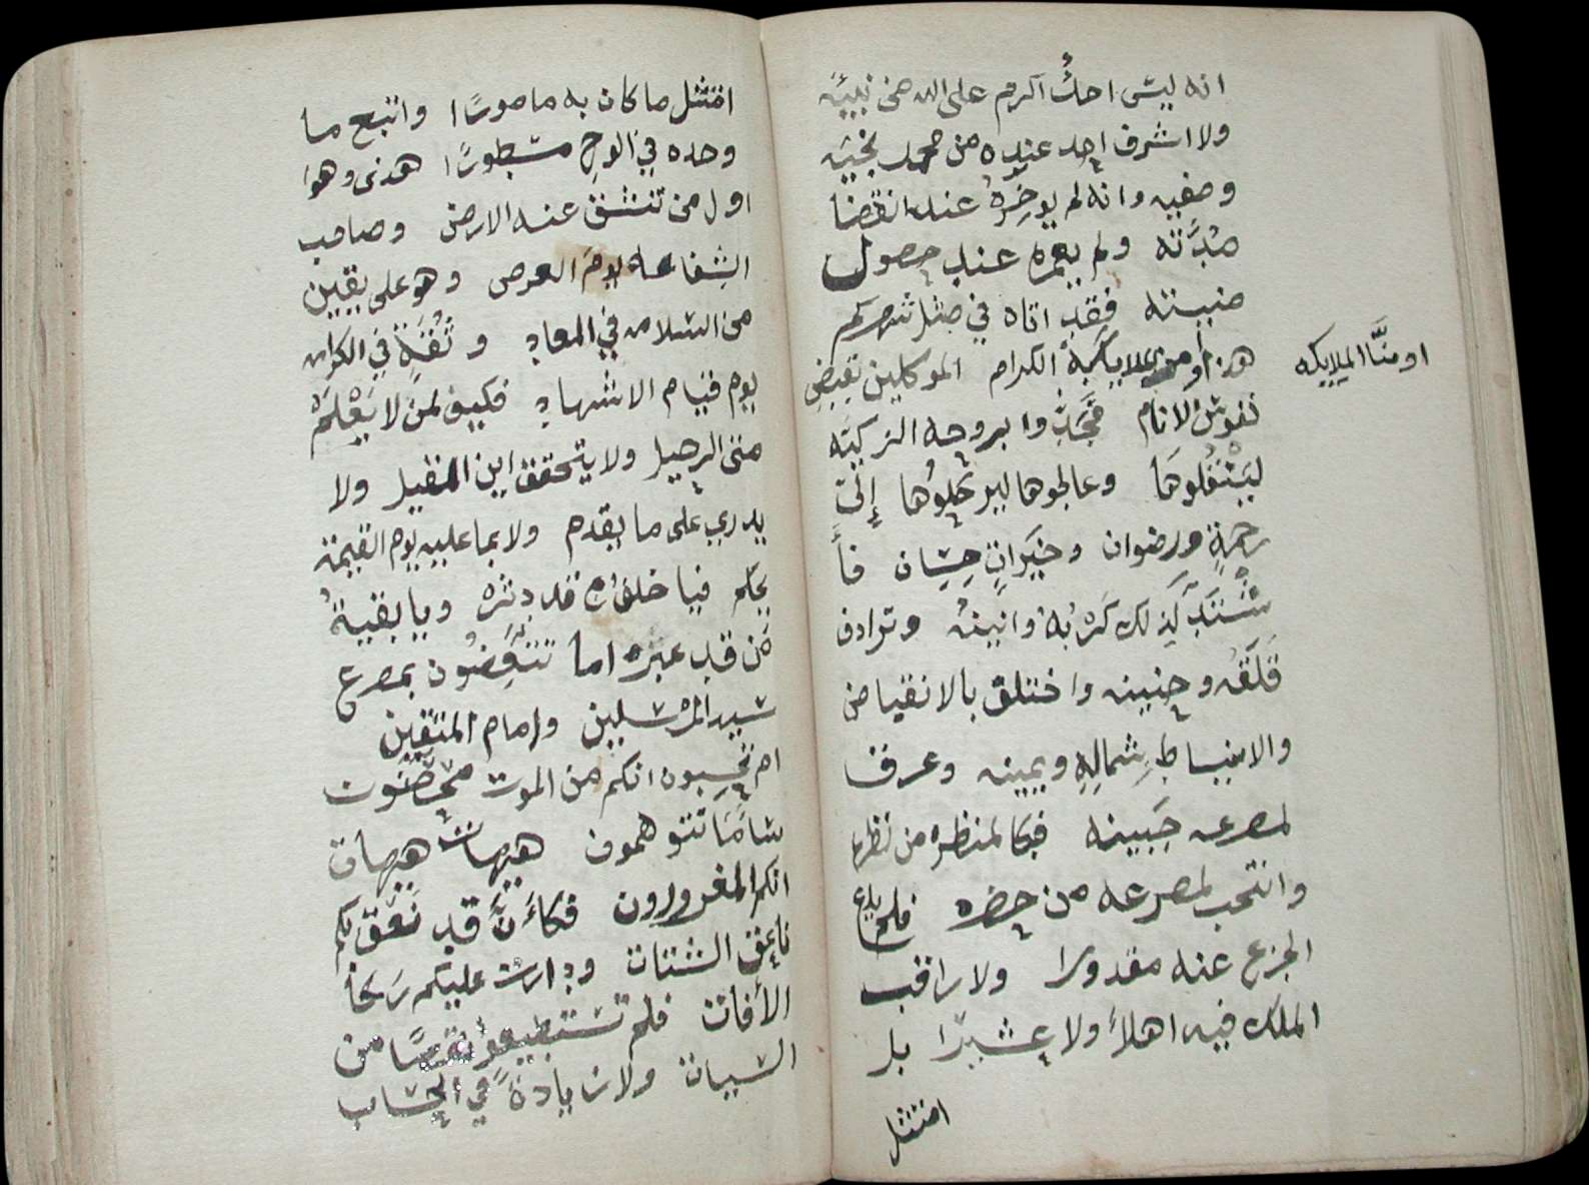 انه ليس احدٌ اكرم على الله من نبيه
ولا اشرف احد عنده من محمد نجيه
وصفيه وانه لم يوخِرهُ عند انقضا
مُدَّته ولم يعمره عند حصول
منيته فقد اتاه في مثل شهركم
هذا من ملايكة الكرام الموكلين بقبض
او منَّا الملايكه
نفوس الانام فجدوا بروحه الزكيه
لينقلوها وعالجوها ليرحلوها إلى
رحمةٍ ورضوان وخيراتٍ حسان فأ
شتد لذلك كربه وانينه وترادف
قلقه وحنينه واختلف بالانقباض
والانبساط شماله ويمينه وعرق
لمصرعه جبينه فبكا لمنظره من نظره
وانتحب لمصرعه من حضره فلم يدفع
الجزع عنه مقدورا ولا راقب
الملك فيه اهلاً ولا عشيرا بل
امتثل
امتثل ما كان به مامورًا واتبع ما
وجده في اللوح مسطورًا هذى وهو
اول من تنشق عنه الارض وصاحب
الشفاعه يوم العرض وهو على يقين
من السلامه في المعاد وثقةٍ في الكرامه
يوم قيام الاشهاد فكيف لمن لا يعلم
متى الرحيل ولا يتحقق اين المقيل ولا
يدري على ما يقدم ولا بما عليه يوم القيمة
يحكم فيا خلف قد دثره ويا بقية
من قد عبره اما تتعضون بمصرع
سيد المرسلين وامام المتقين
ام تحسبون انكم من الموت محصنون
سا ما تتوهمون هيهات هيهات
انكم المغرورون فكأن قد نعق بكم
ناعق الشتات ودارت عليكم رحا
الأفات فلم تستطيعو نقصًا من
السيات ولا زيادةً في الحساب